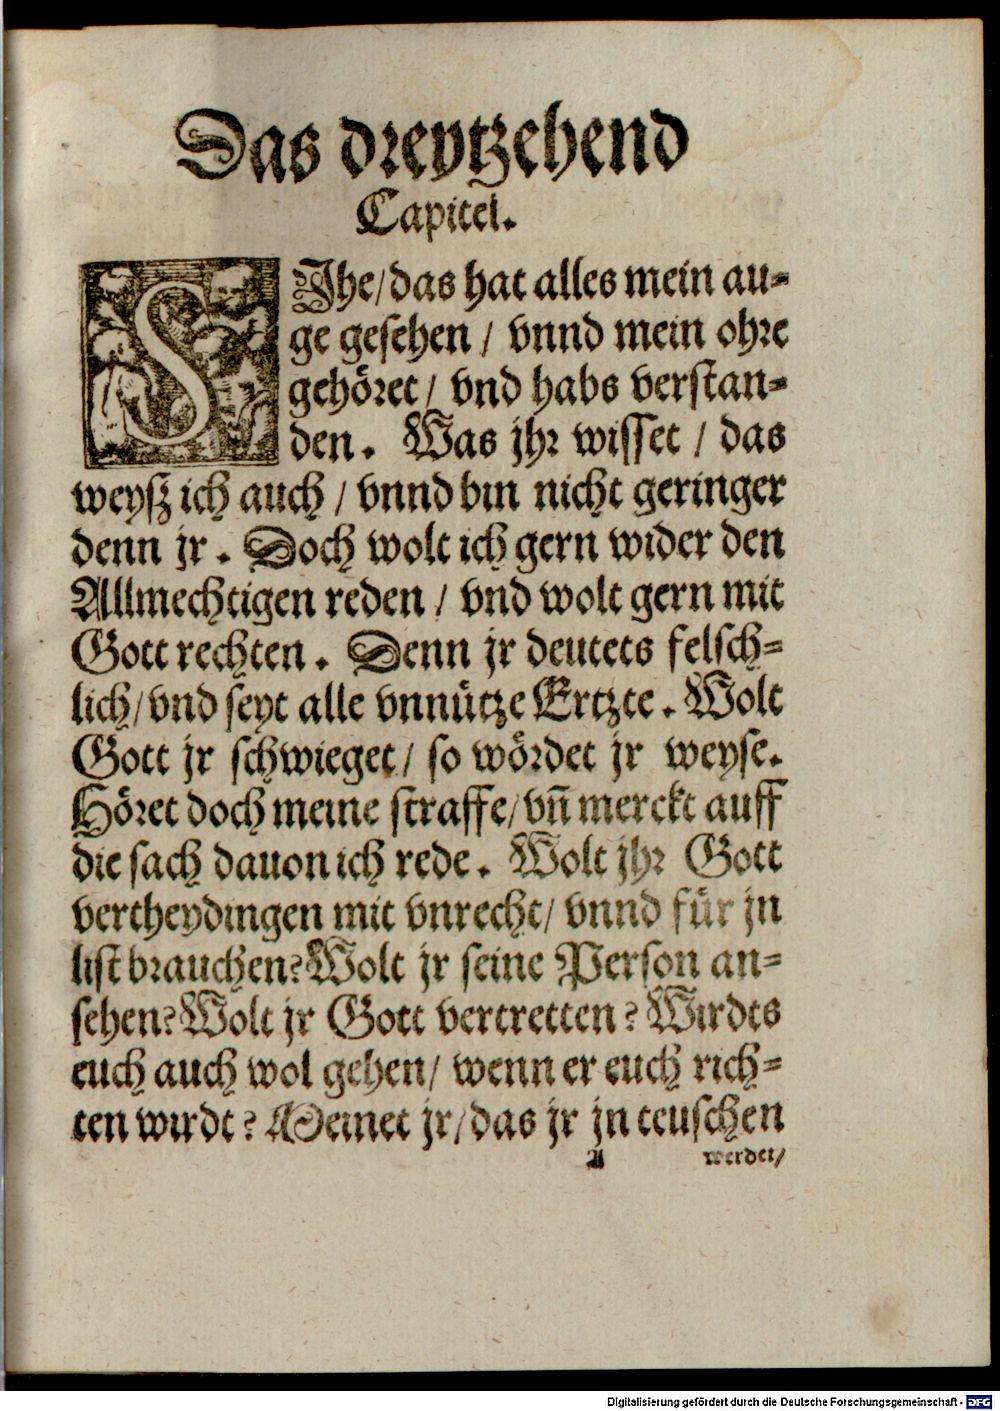 Das dreytzehend
Capitel.
SIhe/das hat alles mein au-
ge gesehen / vnnd mein ohre
gehöret / vnd habs verstan-
den. Was jhr wisset / das
weysz ich auch / vnnd bin nicht geringer
denn jr. Doch wolt ich gern wider den
Allmechtigen reden / vnd wolt gern mit
Gott rechten. Denn jr deutets felsch-
lich/vnd seyt alle vnnütze Ertzte. Wolt
Gott jr schwieget / so wördet jr weyse.
Höret doch meine straffe/vñ merckt auff
die sach dauon ich rede. Wolt jhr Gott
vertheydingen mit vnrecht/ vnnd für jn
list brauchen? Wolt jr seine Person an-
sehen? Wolt jr Gott vertretten? Wirdts
euch auch wol gehen/ wenn er euch rich-
ten wirdt? Meinet jr/das jr jn teuschen
A werdet/
Digitalisierung gefördert durch die Deutsche Forschungsgemeinschaft - DFG